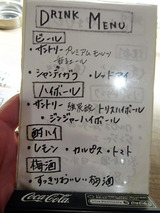 DRINK MENU
ビール
・サントリー プレミアムモルツ
・シャンディガフ ・レッドアイ
ハイボール
・サントリー トリスハイボール
・ジンジャーハイボール
酎ハイ
・レモン ・カルピス ・トマト
梅酒
・すっきりおいしい梅酒
Coca-Cola